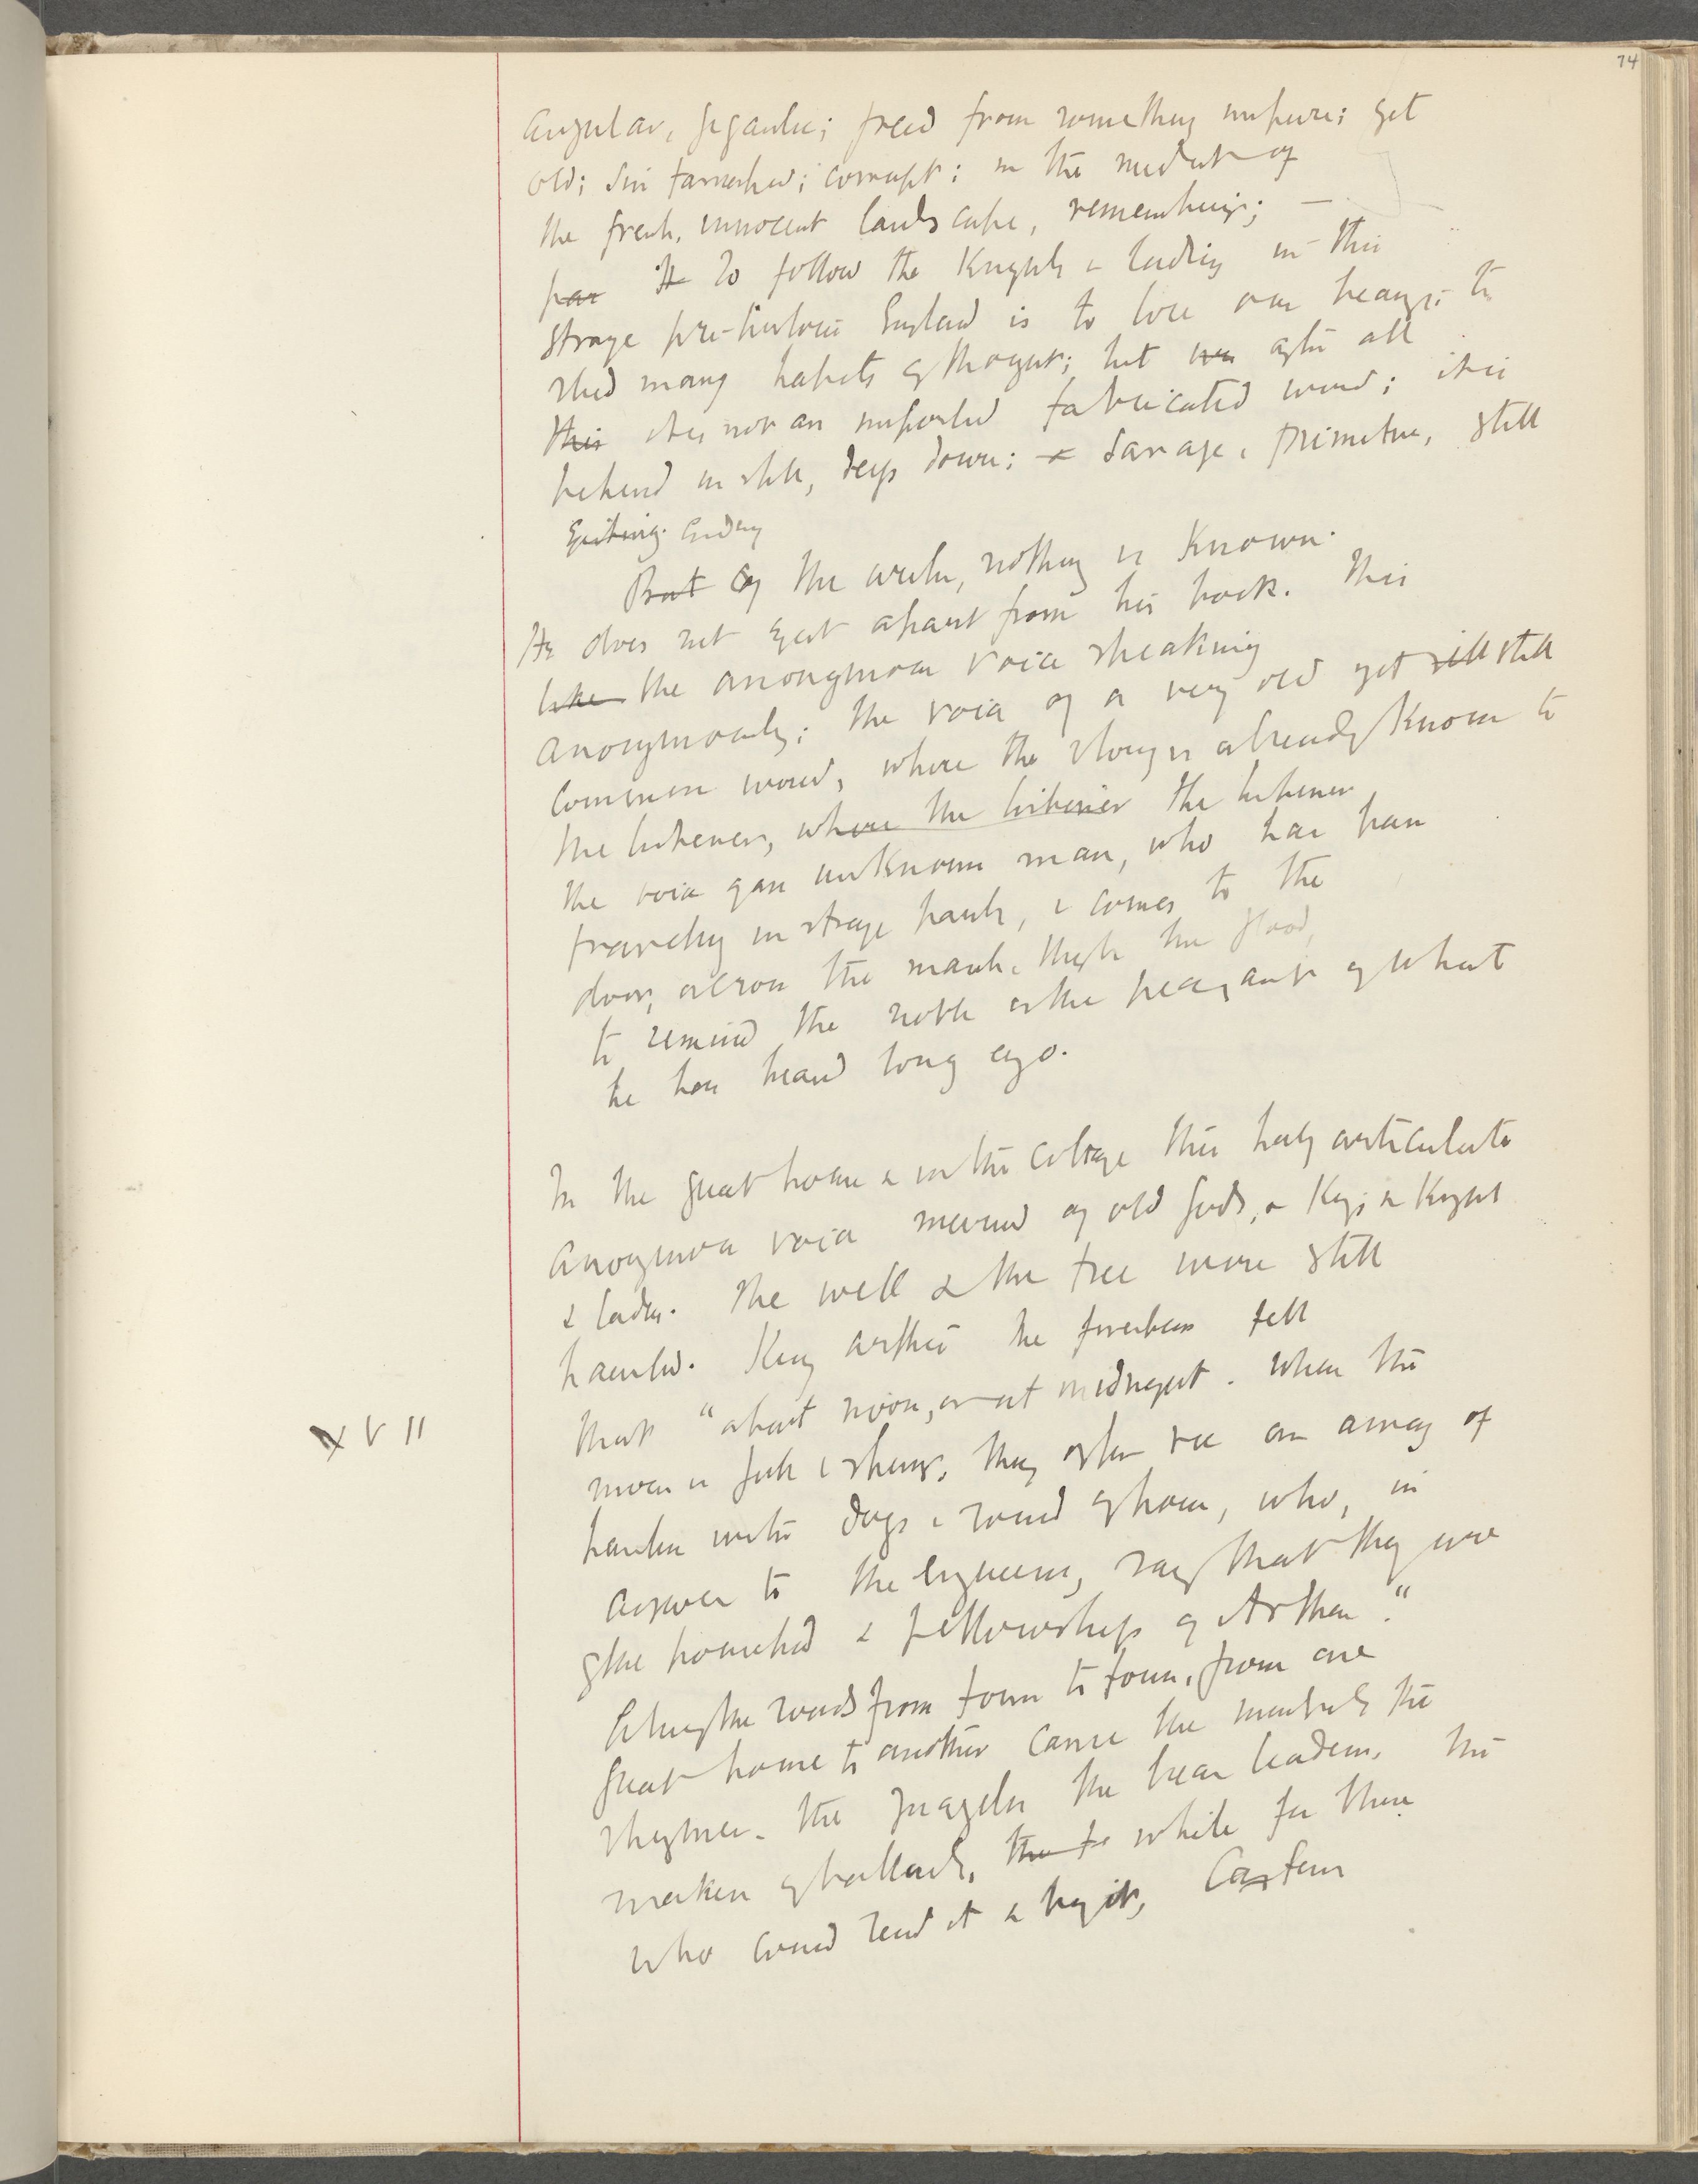 74
angular, gigantic; freed from something impure; yet
old; sin tarnished; corrupt; in the midst of
the fresh, innocent landscape, remembering; —
par It To follow the Knights & ladies in this
strange pre-historic England is to lose our bearings; to
shed many habits of thought; but after all
this it is not an imported fabricated world; it is
behind us still, deep down; & savage, primitive, still
Existing.
But Of the writer, nothing is Known.
He does not exist apart from his book. This
like the anonymous voice speaking
anonymously; the voice of a very old yet still still
common world, where the story is already Known to
the listener, where the listener the listener
the voice of an unknown man, who has been
travelling in strange parts, & comes to the
door, across the marsh, through the flood,
to remind the noble or the peasant of what
he has heard long ago.
In the great house & in the cottage this half articulate
anonymous voice of old gods, & Kings & Knights
& ladies. The well & the tree were still
haunted. King Arthur the foresters tell
that "about noon, or at midnight. When the
moon is full & shining, they often see an array of
hunters with dogs & sound of horns, who, in
answer to the enquirers, say that they are
of the household & fellowship of Arthur."
Along the roads from town to town, from one
great house to another came the minstrels the
rhymer. the jugglers the bear leaders, the
makers of ballads, the to while for those
who could read it & buy it, Caxton
XVII